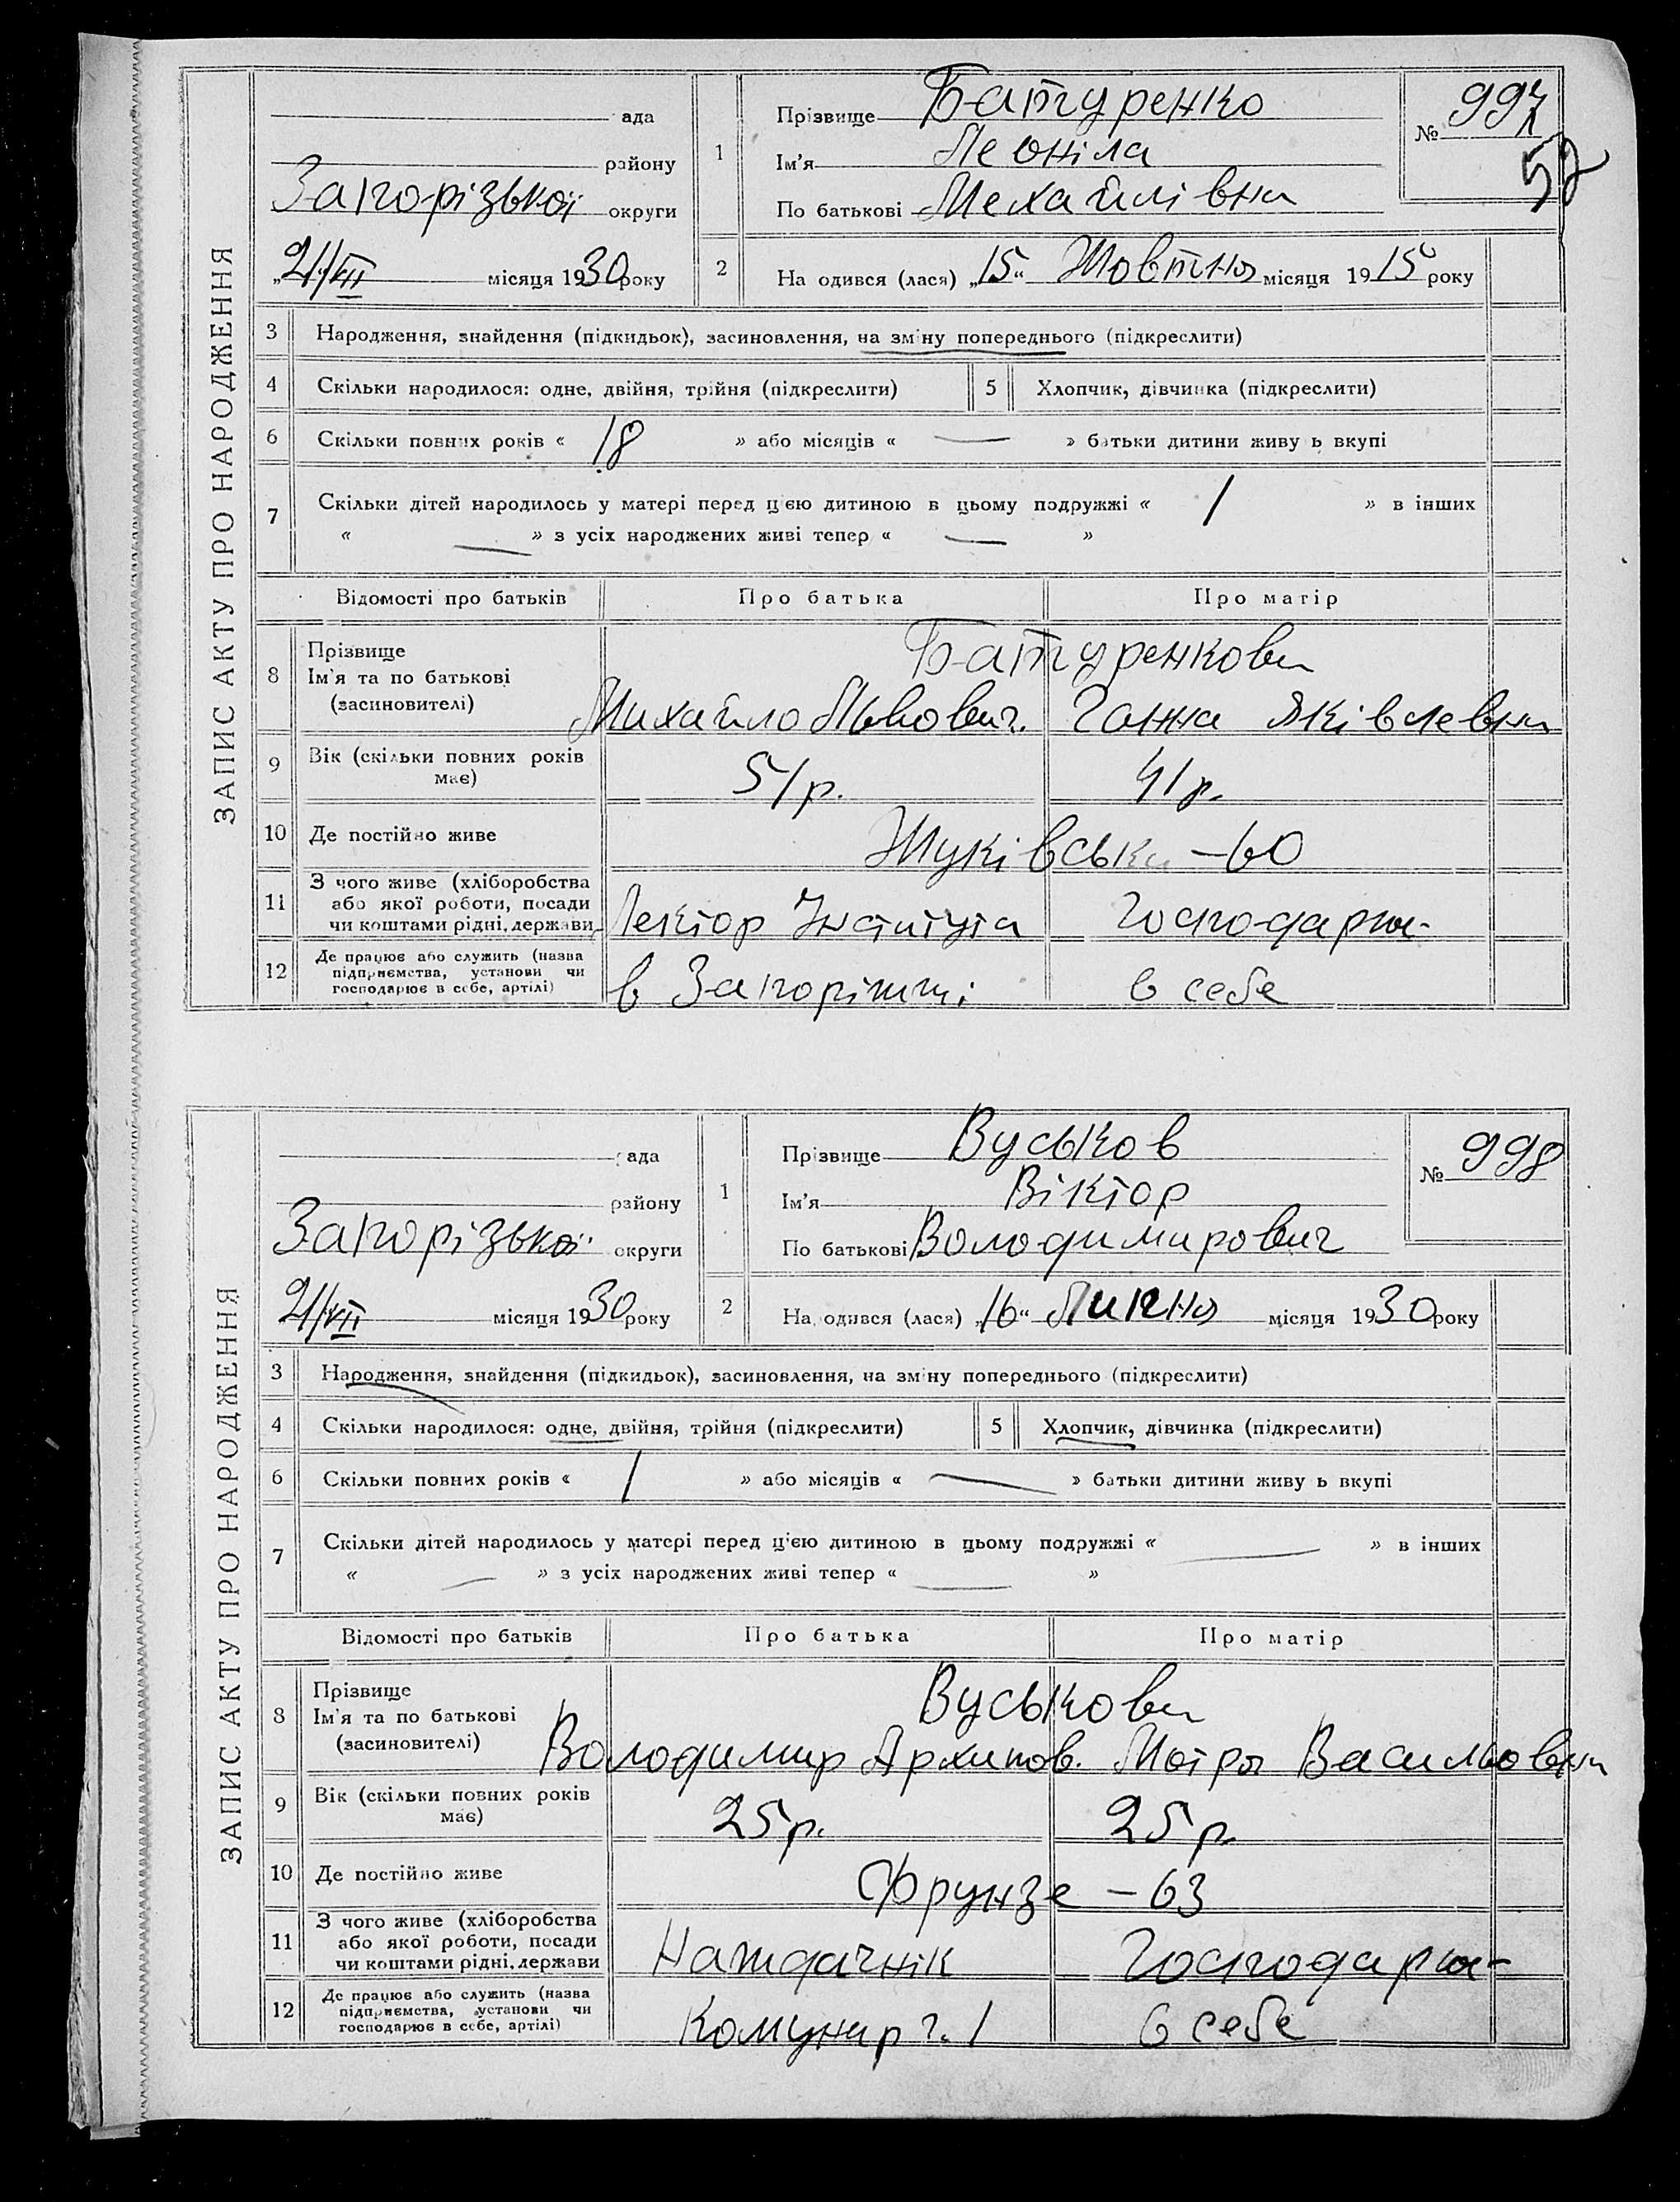 ЗАПИС АКТУ ПРО НАРОДЖЕННЯ
ада
району
Запорізької округи
„21/VII місяця 1930 року
1
Прізвище Батуренко
Ім'я Леоніла
По батькові Мехайлівна
№ 997
52
2
На одився (лася) „15“ Жовтня місяця 1915 року
3 Народження, знайдення (підкидьок), засиновлення, на зміну попереднього (підкреслити)
4 Скільки народилося: одне, двійня, трійня (підкреслити) 5 Хлопчик, дівчинка (підкреслити)
6 Скільки повних років « 18 » або місяців « — » батьки дитини живу ь вкупі
7 Скільки дітей народилось у матері перед цією дитиною в цьому подружжі « / » в інших
« — » з усіх народжених живі тепер « — »
Відомості про батьків Про батька Про матір
8 Прізвище
Ім'я та по батькові
(засиновителі)
Батуренкови
Михайло Львович. Ганна Яківлевна
9 Вік (скільки повних років має) 51 р. 41 р.
10 Де постійно живе Жуківська – 60
11 З чого живе (хліборобства
або якої роботи, посади
чи коштами рідні, держави
Лектор Інститута Господарка-
12 Де працює або служить (назва
підприємства, установи чи
господарює в себе, артілі)
в Запоріжжі в себе
ЗАПИС АКТУ ПРО НАРОДЖЕННЯ
ада
району
Запорізької округи
21/VII місяця 1930 року
1
Прізвище Вуськов
Ім'я Віктор
По батькові Володимирович
№ 998
2
На одився (лася) „16“ Липня місяця 1930 року
3 Народження, знайдення (підкидьок), засиновлення, на зміну попереднього (підкреслити)
4 Скільки народилося: одне, двійня, трійня (підкреслити) 5 Хлопчик, дівчинка (підкреслити)
6 Скільки повних років « 1 » або місяців « — » батьки дитини живу ь вкупі
7 Скільки дітей народилось у матері перед цією дитиною в цьому подружжі « — » в інших
« — » з усіх народжених живі тепер « — »
Відомості про батьків Про батька Про матір
8 Прізвище
Ім'я та по батькові
(засиновителі)
Вуськови
Володимир Архипов. Мотря Васильовна
9 Вік (скільки повних років має) 25 р. 25 р.
10 Де постійно живе Фрунзе – 63
11 З чого живе (хліборобства
або якої роботи, посади
чи коштами рідні, держави
Наждачнік Господарка-
12 Де працює або служить (назва
підприємства, установи чи
господарює в себе, артілі)
Комунар ч. 1 в себе